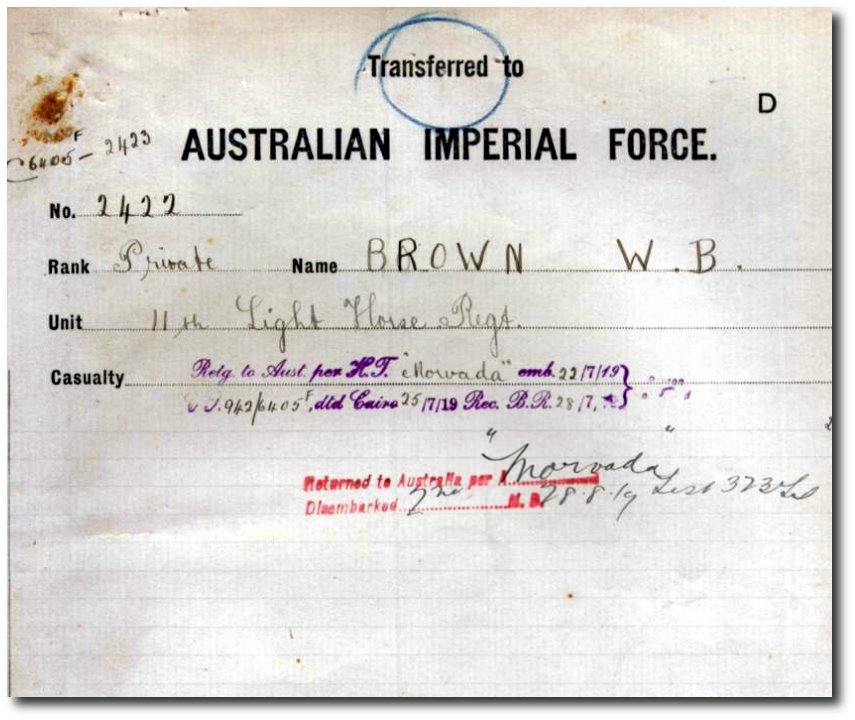 Transferred to
D
AUSTRALIAN IMPERIAL FORCE.
6405F - 2423
No. 2422
Rank Private Name BROWN W.B.
Unit 11th Light Horse Regt.
Casualty Retg. to Aust. per H.T. "Morvada" emb. 22/7/19
942/6405F, dtd Cairo 25/7/19 Rec. B.R. 28/7/
Returned to Australia per "Morvada"
Disembarked 2nd M.D. 28.8.19 List 323